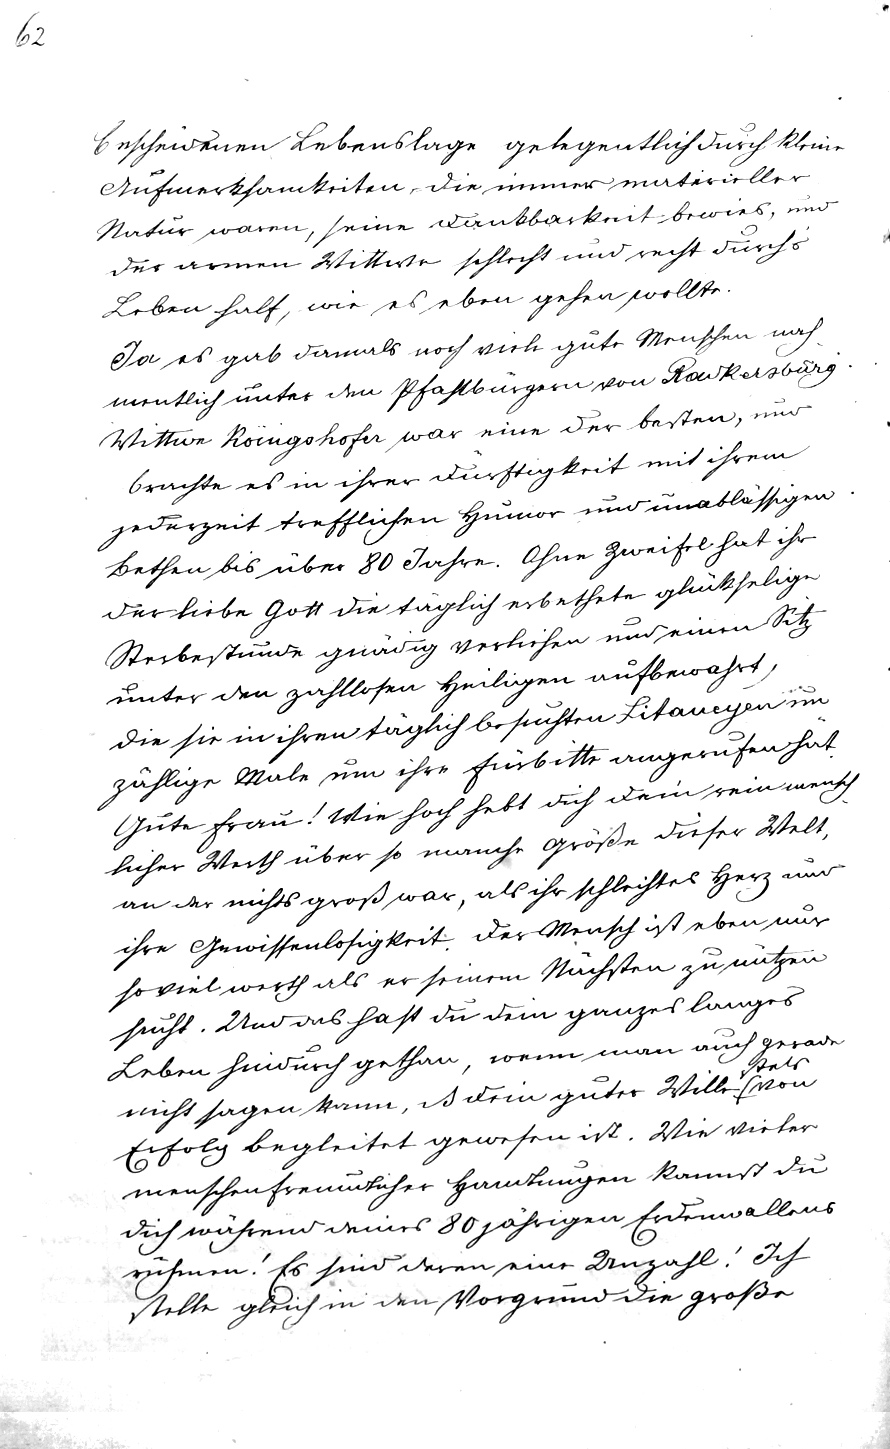 62
bescheidenen Lebenslage gelegentlich durch kleine
Aufmerksamkeiten, die immer materieller
Natur waren, seine Dankbarkeit bewies, und
der armen Wittwe schlecht und recht durch's
Leben half, wie es eben gehen wollte.
Ja es gab damals noch viele gute Menschen nah
mentlich unter den Pfahlbürgern von Radkersburg.
Wittwe Königshofer war eine der besten, und
brachte es in ihrer Dürftigkeit mit ihrem
jederzeit trefflichen Humor und unablässigen
Bethen bis über 80 Jahre. Ohne Zweifel hat ihr
der liebe Gott die täglich erbethete glükselige
Sterbestunde gnädig verliehen und einen Sitz
unter den zahllosen Heiligen aufbewahrt,
die sie in ihren täglich besuchten Litaneyen un
zählige Male um ihre Fürbitte angerufen hat.
Gute Frau! Wie hoch hebt dich dein rein mensch-
licher Werth über so manche Größe dieser Welt,
an der nichts groß war, als ihr schlechtes Herz und
ihre Gewissenlosigkeit. Der Mensch ist eben nur
soviel werth als er seinem Nächsten zu nützen
sucht. Und das hast du dein ganzes langes
Leben hindurch gethan, wenn man auch gerade
nicht sagen kann, dß dein guter Wille stets von
Erfolg begleitet gewesen ist. Wie vieler
menschenfreundlicher Handlungen kannst du
dich während deines 80 jährigen Erdenwallens
rühmen! Es sind deren eine Unzahl! Ich
stelle gleich in den Vorgrund die große